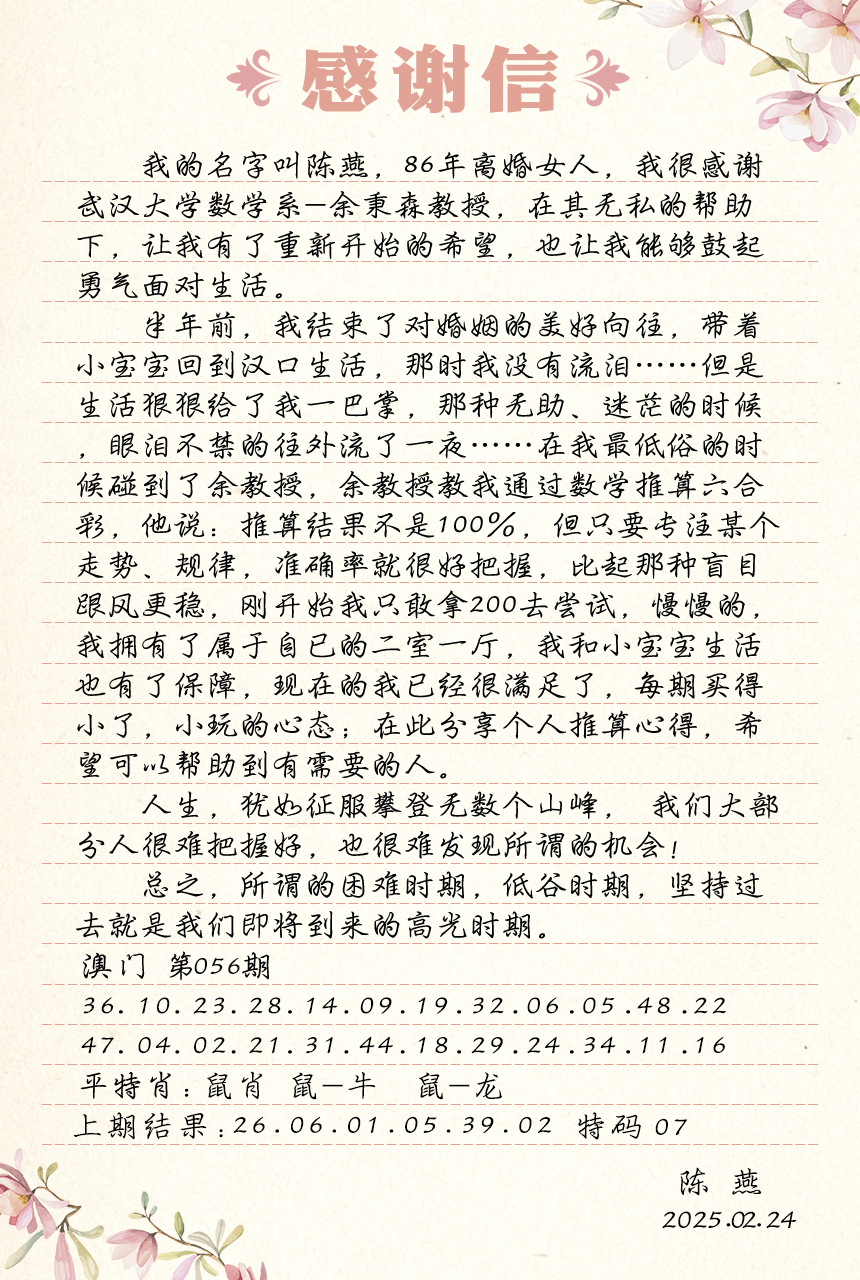 感谢信
我的名字叫陈燕，86年离婚女人，我很感谢
武汉大学数学系—余秉森教授，在其无私的帮助
下，让我有了重新开始的希望，也让我能够鼓起
勇气面对生活。
半年前，我结束了对婚姻的美好向往，带着
小宝宝回到汉口生活，那时我没有流泪……但是
生活狠狠给了我一巴掌，那种无助、迷茫的时候
，眼泪不禁的往外流了一夜……在我最低俗的时
候碰到了余教授，余教授教我通过数学推算六合
彩，他说：推算结果不是100%，但只要专注某个
走势、规律，准确率就很好把握，比起那种盲目
跟风更稳，刚开始我只敢拿200去尝试，慢慢的，
我拥有了属于自已的二室一厅，我和小宝宝生活
也有了保障，现在的我已经很满足了，每期买得
小了，小玩的心态；在此分享个人推算心得，希
望可以帮助到有需要的人。
人生，犹如征服攀登无数个山峰， 我们大部
分人很难把握好，也很难发现所谓的机会！
总之，所谓的困难时期，低谷时期，坚持过
去就是我们即将到来的高光时期。
澳门 第056期
36.10.23.28.14.09.19.32.06.05.48.22
47.04.02.21.31.44.18.29.24.34.11.16
平特肖：鼠肖 鼠—牛 鼠—龙
上期结果：26.06.01.05.39.02 特码 07
陈 燕
2025.02.24